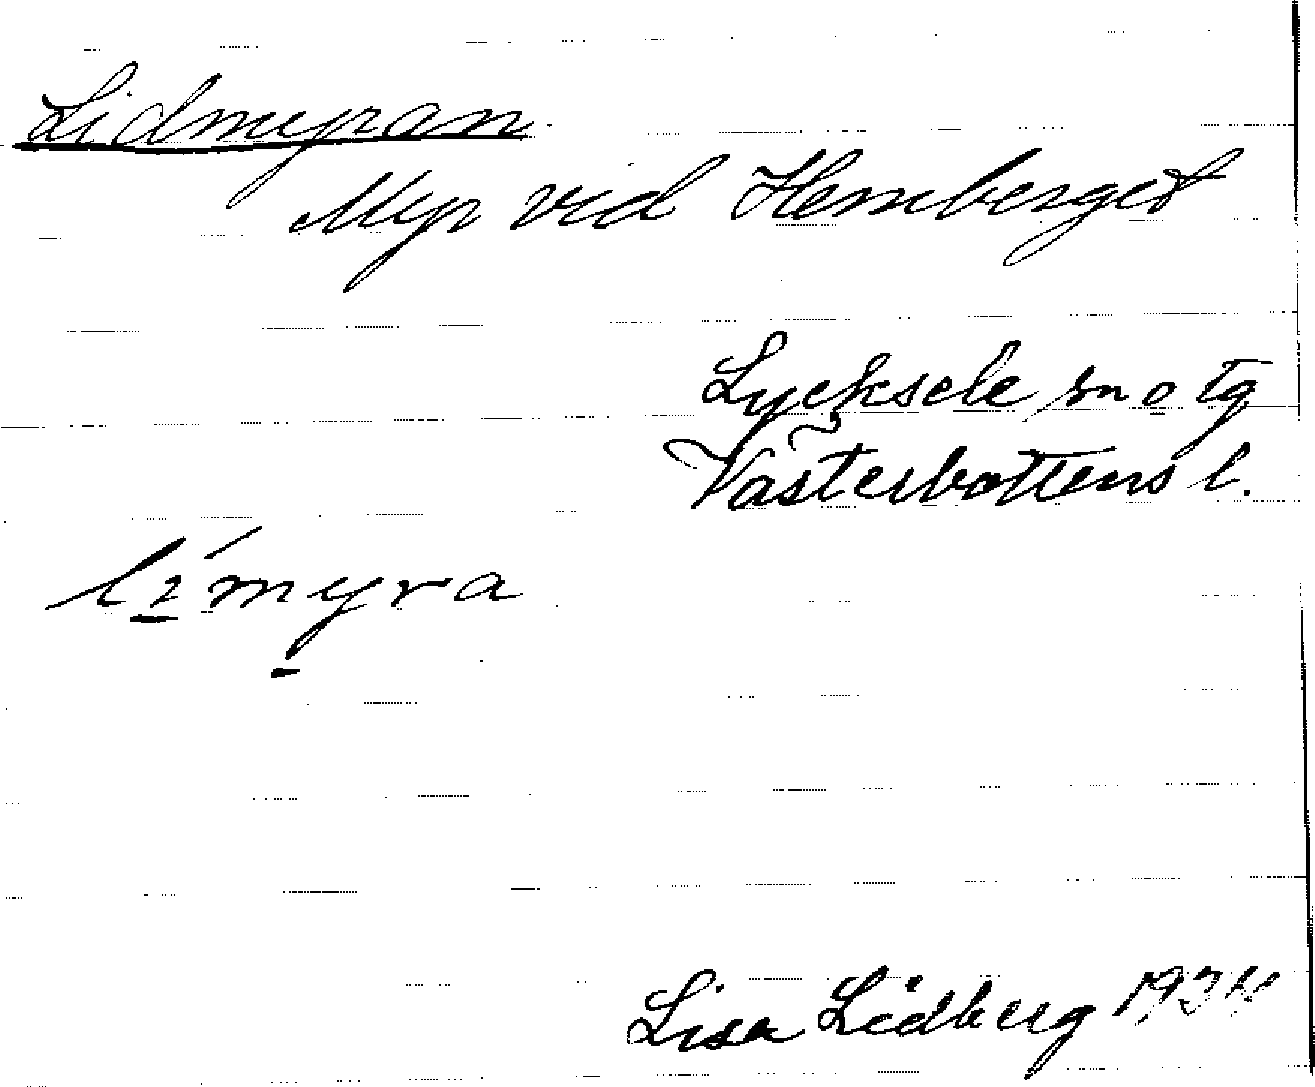 Lidmyran
Myr vid Hemberget
Lycksele sn o tg
Västerbottens l.
Lisa Lidberg 1934